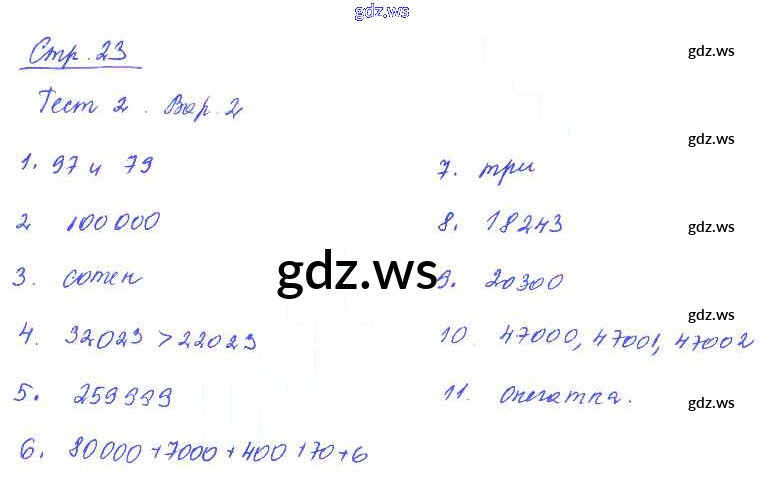 gdz.ws
Стр. 23
gdz.ws
Тест 2. Вар. 2
gdz.ws
1. 97 и 79
2 100 000
3. сотен
4. 32023 > 22023
5. 259999
6. 80000+7000+400+70+6
gdz.ws
7. три
8. 18243
gdz.ws
9. 20300
gdz.ws
10. 47000, 47001, 47002
gdz.ws
11.